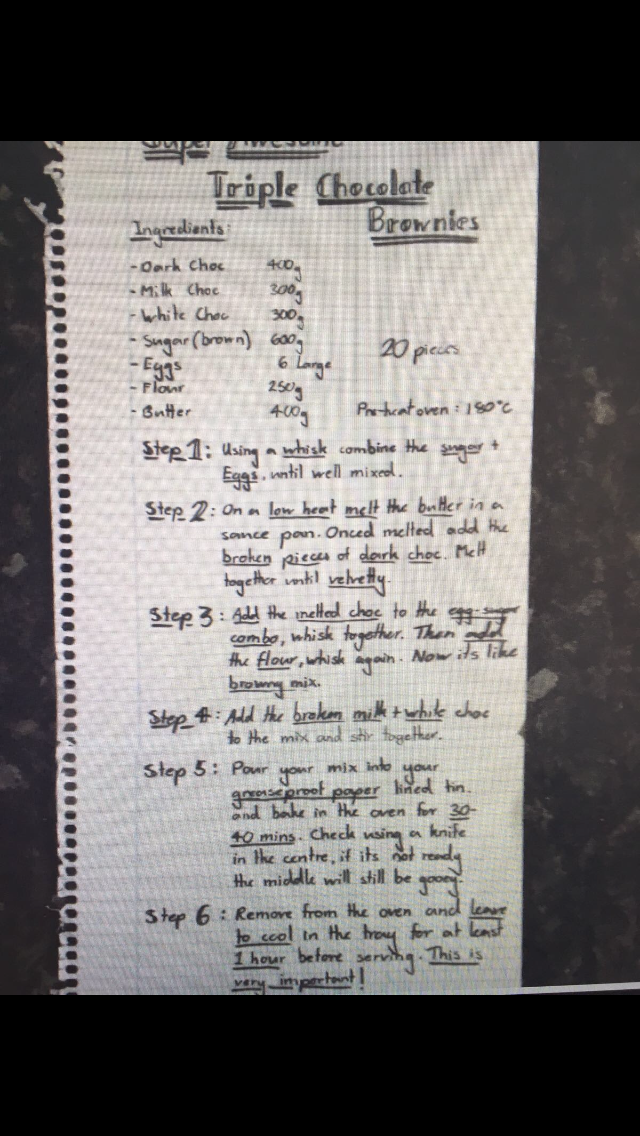 Super Awesome
Triple Chocolate
Brownies
Ingredients:
- Dark Choc 400g
- Milk Choc 300g
- White Choc 300g
- Sugar (brown) 600g
- Eggs 6 Large
20 pieces
- Flour 250g
- Butter 400g
Pre-heat oven : 180°C
Step 1: Using a whisk combine the sugar +
Eggs, until well mixed.
Step 2: On a low heat melt the butter in a
sauce pan. Onced melted add the
broken pieces of dark choc. Melt
together until velvetty.
Step 3: Add the melted choc to the egg-sugar
combo, whisk together. Then add
the flour, whisk again. Now its like
browny mix.
Step 4: Add the broken milk + white choc
to the mix and stir together.
Step 5: Pour your mix into your
greaseproof paper lined tin.
and bake in the oven for 30-
40 mins. Check using a knife
in the centre, if its not ready
the middle will still be gooey.
Step 6: Remove from the oven and leave
to cool in the tray for at least
1 hour before serving. This is
very important!